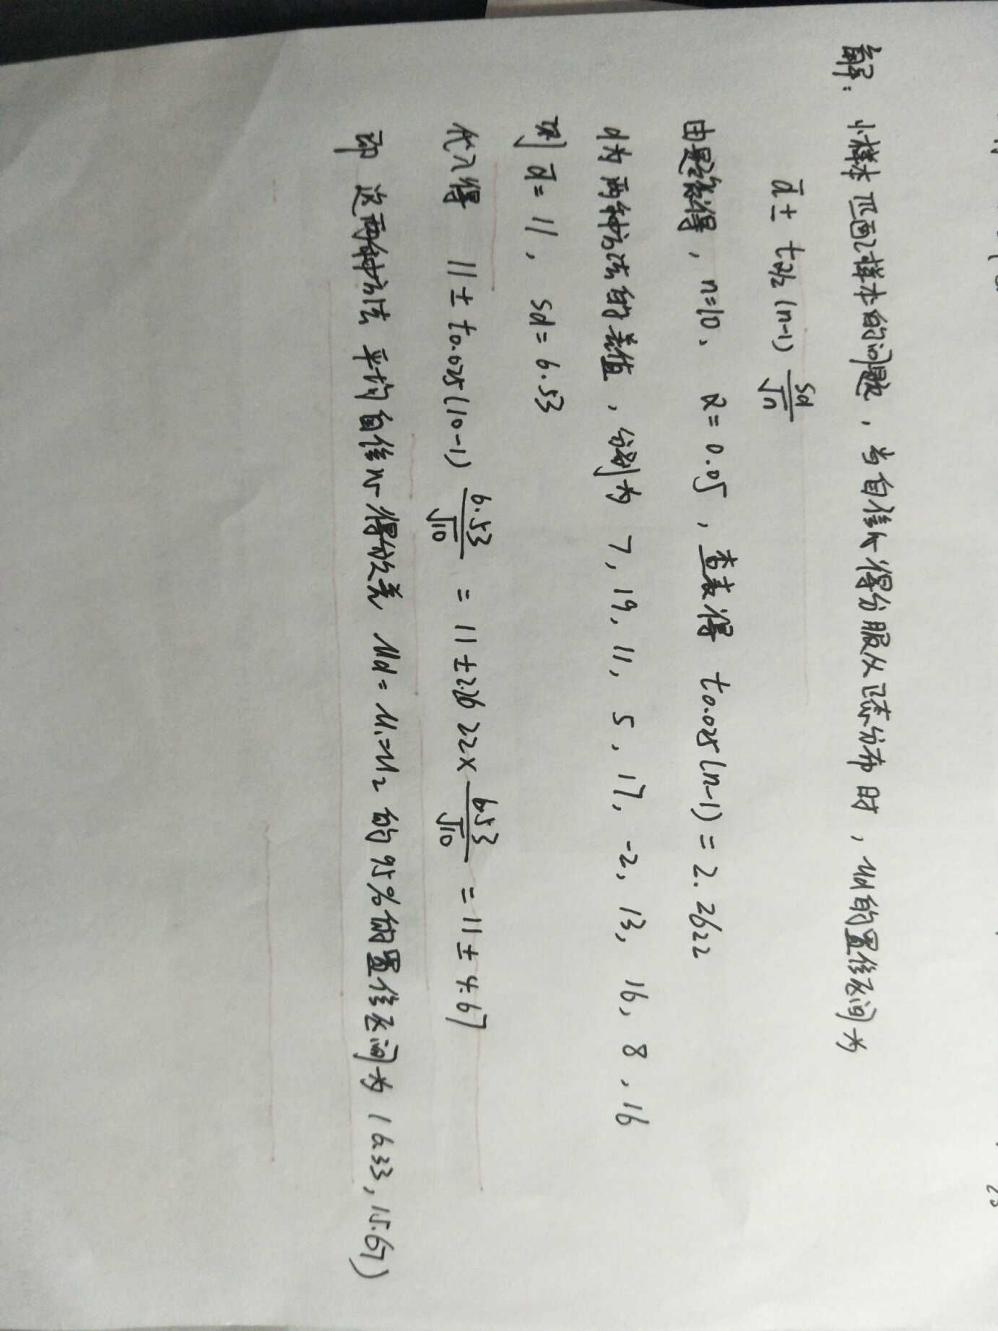 解: 小样本匹配样本的问题, 当自信心得分服从正态分布时, μd的置信区间为
d̄ ± tα/2 (n-1) sd/√n
由题意得, n=10, α=0.05, 查表得 t0.025(n-1) = 2.2622
d为两种方法的差值, 分别为 7, 19, 11, 5, 17, -2, 13, 16, 8, 16
则 d̄ = 11, sd = 6.53
代入得 11 ± t0.025(10-1) 6.53/√10 = 11 ± 2.2622 × 6.53/√10 = 11 ± 4.67
即 这两种方法 平均自信心得分之差 μd = μ1-μ2 的95%的置信区间为 (6.33, 15.67)